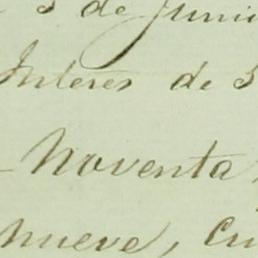 3 de Juni
Interes de 3
Noventa
nueve, cu